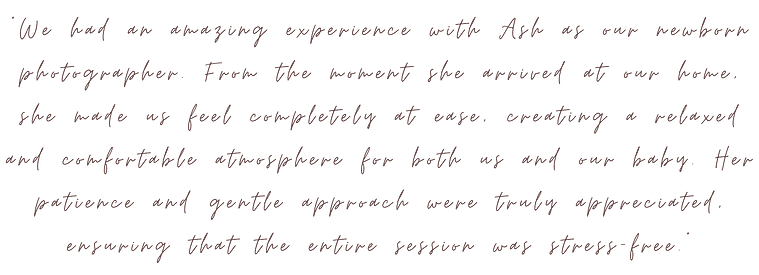 "We had an amazing experience with Ash as our newborn
photographer. From the moment she arrived at our home,
she made us feel completely at ease, creating a relaxed
and comfortable atmosphere for both us and our baby. Her
patience and gentle approach were truly appreciated,
ensuring that the entire session was stress-free."